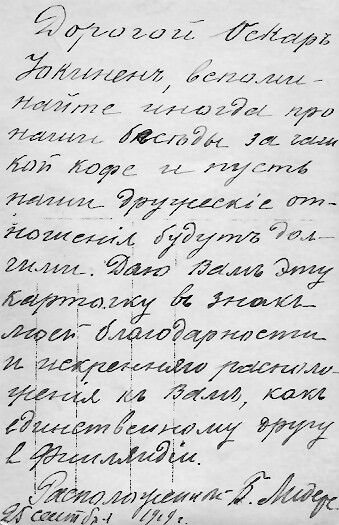 Дорогой Оскаръ
Іокиненъ, вспоми-
найте иногда про
наши бесѣды за чаш
кой кофе и пусть
наши дружескіе от-
ношенія будутъ дол-
гими. Даю Вамъ эту
карточку въ знакъ
моей благодарности
и искренняго располо-
женія къ Вамъ, какъ
единственному другу
в Финляндіи.
Расположенный Б.
25 сентября 1919 г.